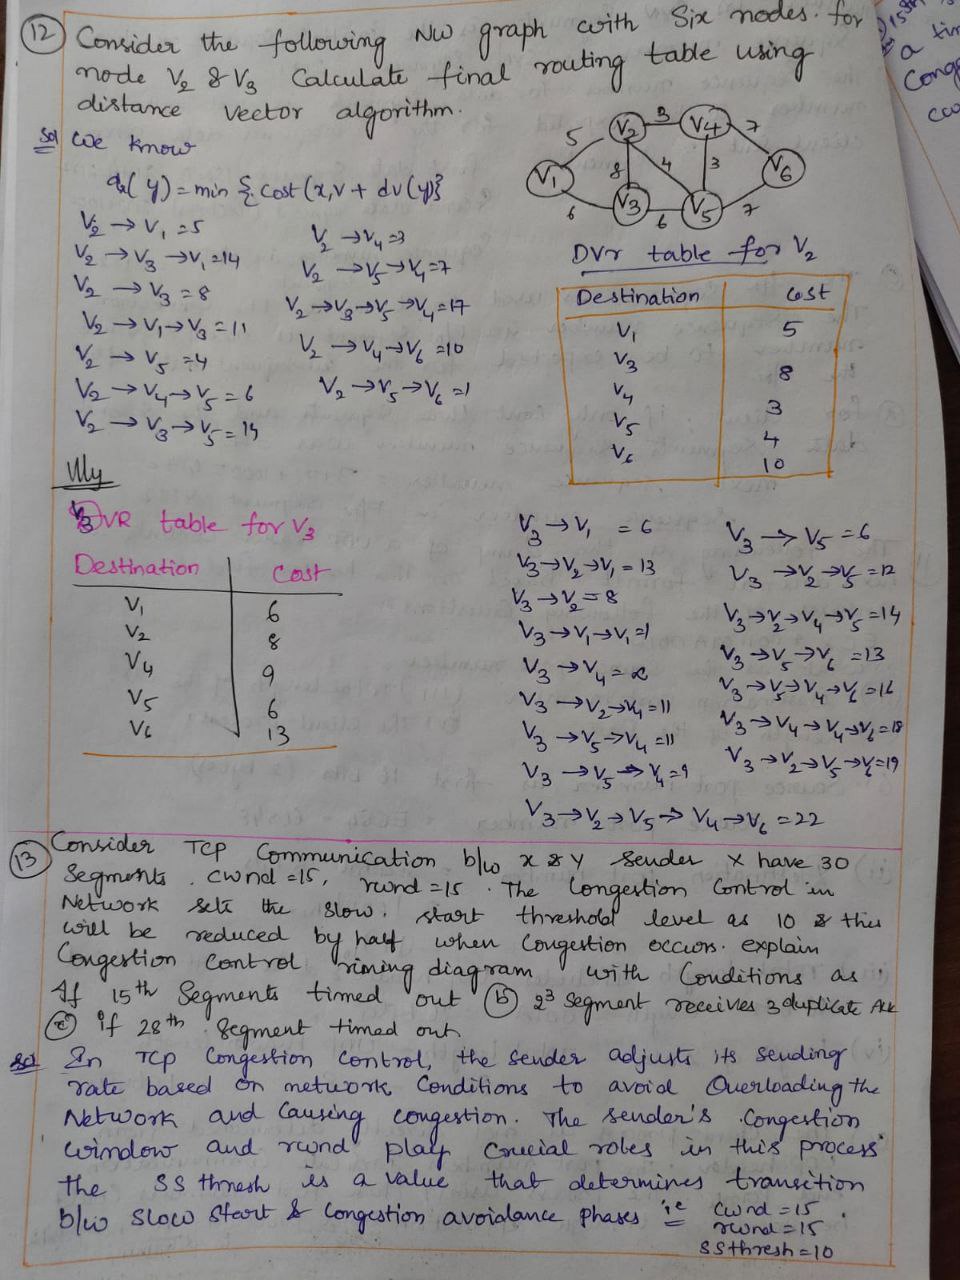 12 Consider the following NW graph with Six nodes. for
node V2 & V3 Calculate final routing table using
distance vector algorithm.
Sol We know
dx(y) = min {cost (x,v + dv(y)}
V2 → V1 = 5
V2 → V3 → V1 = 14
V2 → V3 = 8
V2 → V1 → V3 = 11
V2 → V5 = 4
V2 → V4 → V5 = 6
V2 → V3 → V5 = 14
V2 → V4 = 3
V2 → V5 → V4 = 7
V2 → V3 → V5 → V4 = 17
V2 → V4 → V6 = 10
V2 → V5 → V6 = 1
V1 V2 V3 V4 V5 V6
5 3 7 8 4 3 6 6 7
DVr table for V2
Destination Cost
V1 5
V3 8
V4 3
V5 4
V6 10
Illy
DVR table for V3
Destination Cost
V1 6
V2 8
V4 9
V5 6
V6 13
V3 → V1 = 6
V3 → V2 → V1 = 13
V3 → V2 = 8
V3 → V1 → V1 = 1
V3 → V4 = ∝
V3 → V2 → V4 = 11
V3 → V5 → V4 = 11
V3 → V5 → V4 = 9
V3 → V2 → V5 → V4 → V6 = 22
V3 → V5 = 6
V3 → V2 → V5 = 12
V3 → V2 → V4 → V5 = 14
V3 → V5 → V6 = 13
V3 → V5 → V4 → V6 = 16
V3 → V4 → V4 → V6 = 18
V3 → V2 → V5 → V6 = 19
13 Consider TCP Communication b/w x & Y Sender X have 30
Segments. cwnd = 15, rwnd = 15. The Congestion Control in
Network sets the slow. start threshold level as 10 & this
will be reduced by half when Congestion occurs. explain
Congestion Control timing diagram with Conditions as
If 15th Segments timed out b 23 Segment receives 3 duplicate Ack
c if 28th Segment timed out
Sol In TCP Congestion Control, the Sender adjusts its Sending
rate based on network Conditions to avoid Overloading the
Network and Causing congestion. The sender's Congestion
window and rwnd play Crucial roles in this process
the SS thresh is a value that determines transition
b/w Slow Start & Congestion avoidance phases ie cwnd = 15
rwnd = 15
SSthresh = 10